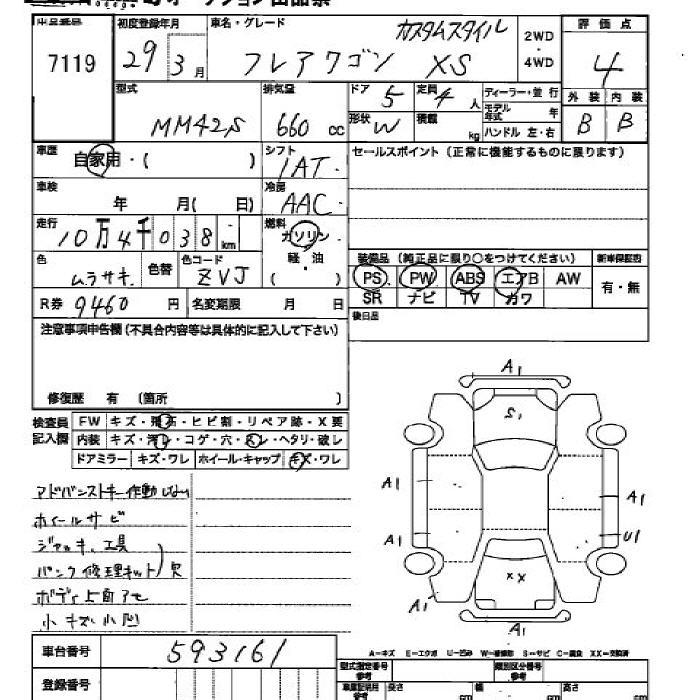 初度登録年月
車名・グレード
カスタムスタイル
2WD
・
4WD
評価点
7119
29 3月
フレアワゴン XS
4
型式
MM42S
排気量
660 cc
ドア 5
定員 4 人
ディーラー・並行
モデル年式 年
外装 内装
形状 W
積載 kg
ハンドル 左・右
B B
車歴 自家用・( )
シフト
1AT
セールスポイント(正常に機能するものに限ります)
車検 年 月( 日)
冷房
AAC
走行
10万4千038km
燃料
ガソリン・
軽・油
( )
装備品(純正品に限り○をつけてください)
新車保証書
色
ムラサキ
色替
色コード
ZVJ
PS PW ABS エアB AW
有・無
SR ナビ TV カワ
R券 9460 円
名変期限 月 日
後日品
注意事項申告欄(不具合内容等は具体的に記入して下さい)
修復歴 有 (箇所 )
検査員
記入欄
FW キズ・飛石・ヒビ割・リペア跡・X要
内装 キズ・汚レ・コゲ・穴・スレ・ヘタリ・破レ
ドアミラー キズ・ワレ ホイール・キャップ キズ・ワレ
アドバンストキー作動しない
ホイールサビ
ジャッキ、工具
パンク修理キット)欠
ボディ上面アセ
小キズ小凹
A1
S1
A1
A1
A1
U1
XX
A1
A1
A=キズ E=エクボ U=凹み W=補修跡 S=サビ C=腐食 XX=交換済
車台番号 593161
登録番号
型式指定番号
参考
類別区分番号
参考
車庫証明用
参考
長さ cm
幅 cm
高さ cm